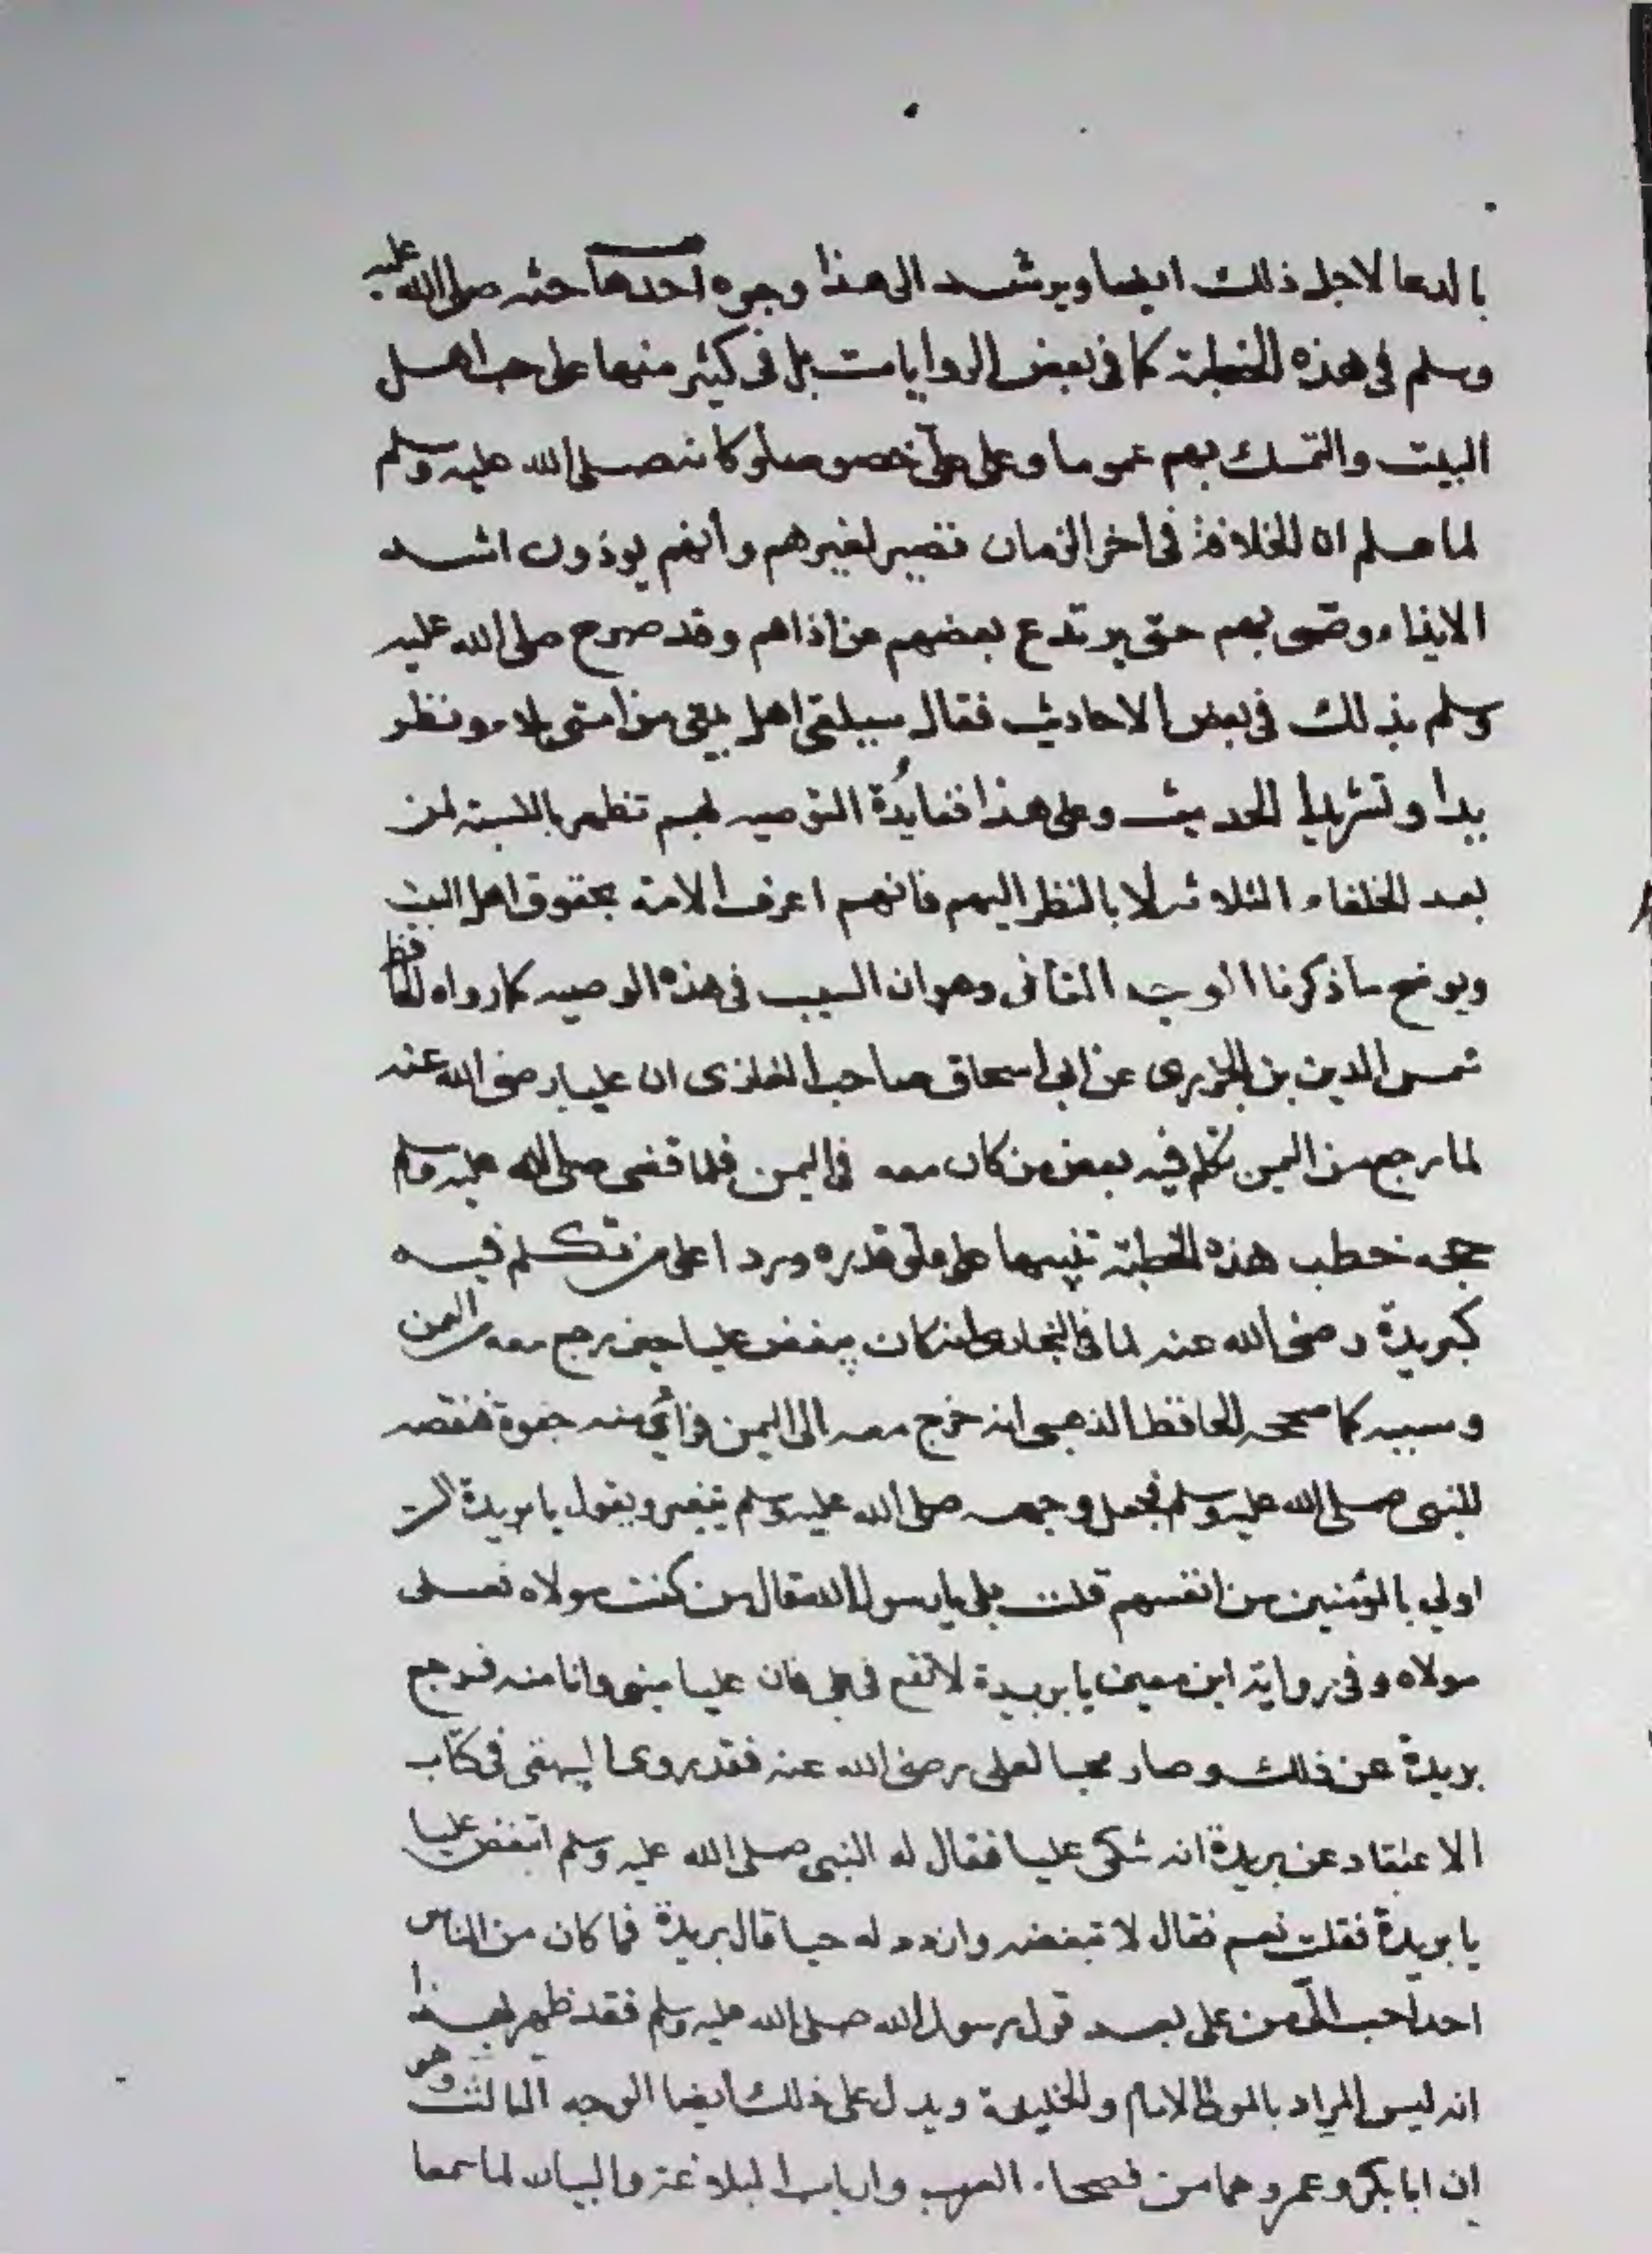 بالدعا لاجل ذلك ايضا ويرشد الى هذا وجوه احدها حثه صلى الله عليه
وسلم فى هذه الخطبة كما فى بعض الروايات بل فى كثير منها على حب اهل
البيت والتمسك بهم عموما وعلى على خصوصا وكانه صلى الله عليه وسلم
لما علم ان الخلافة فى اخر الزمان تصير لغيرهم وأنهم يوذون اشد
الايذاء وصّى بهم حتى يرتدع بعضهم عن اذاهم وقد صرح صلى الله عليه
وسلم بذلك فى بعض الاحاديث فقال سيلقى اهل بيتى من امتى بلاء ونظر
يدا وتشريدا الحديث وعلى هذا ففايدة التوصيه لهم تظهر بالنسبة لمن
بعد الخلفاء الثلاثه لا بالنظر اليهم فانهم اعرف الامة بحقوق اهل البيت
ويوضح ما ذكرنا الوجه الثانى وهو ان السبب فى هذه الوصيه كما رواه الحافظ
شمس الدين بن الجزرى عن ابى اسحاق صاحب المغازى ان عليا رضى الله عنه
لما رجع من اليمن تكلم فيه بعض من كان معه فى اليمن فلما قضى صلى الله عليه وسلم
حجه خطب هذه الخطبة تنبيها على علو قدره وردا على من تكلم فيه
كبريدة رضى الله عنه لما فى البخارى انه كان يبغض عليا حين رجع معه من اليمن
وسببه كما صححه الحافظ الذهبى انه خرج معه الى اليمن فرأى منه جفوة فنقصه
للنبى صلى الله عليه وسلم فجعل وجهه صلى الله عليه وسلم يتغير ويقول يا بريدة الست
اولى بالمؤمنين من انفسهم قلت بلى يا رسول الله قال من كنت مولاه فعلى
مولاه وفى رواية ابن معين يا بريدة لا تقع فى على فان عليا منى وانا منه فرجع
بريدة عن ذلك وصار محبا لعلى رضى الله عنه فقد روى البيهقى فى كتاب
الاعتقاد عن بريدة انه شكى عليا فقال له النبى صلى الله عليه وسلم اتبغض عليا
يا بريدة فقلت نعم فقال لا تبغضه وازدد له حبا قال بريدة فما كان من الناس
احد احب الىّ من على بعد قول رسول الله صلى الله عليه وسلم فقد ظهر بهذا
انه ليس المراد بالمولى الامام والخليفة ويدل على ذلك ايضا الوجه الثالث وهو
ان ابا بكر وعمر وهما من فصحاء العرب وارباب البلاغة والبيان لما سمعا